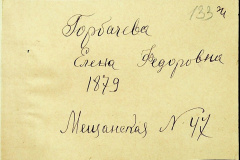 133 ж
Горбачева
Елена Федоровна
1879
Мещанская № 47